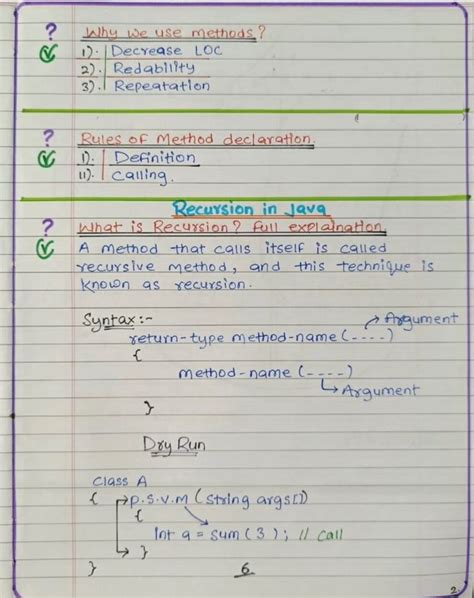 ? Why we use methods?
1). Decrease LOC
2). Redability
3). Repeatation
? Rules of Method declaration.
1). Definition
11). Calling.
Recursion in Java
? What is Recursion? full explaination
A method that calls itself is called
recursive method, and this technique is
known as recursion.
Syntax:- Argument
return-type method-name (----)
{
method-name (----)
Argument
}
Dry Run
Class A
{ p.s.v.m (string args[])
{
Int a = sum (3); // call
}
} 6
2